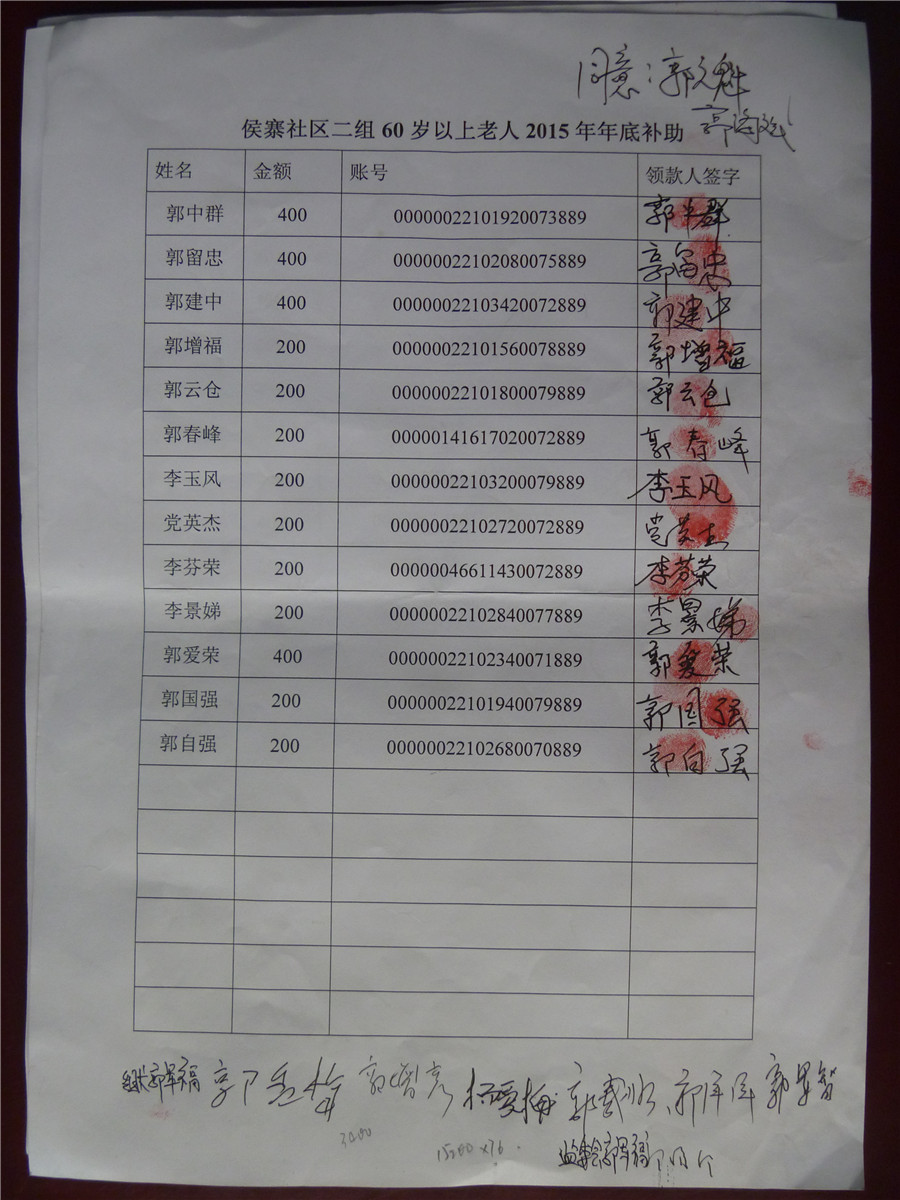 同意：郭文魁
侯寨社区二组 60 岁以上老人 2015 年年底补助
姓名 金额 账号 领款人签字
郭中群 400 00000022101920073889 郭中群
郭留忠 400 00000022102080075889 郭留忠
郭建中 400 00000022103420072889 郭建中
郭增福 200 00000022101560078889 郭增福
郭云仓 200 00000022101800079889 郭云仓
郭春峰 200 00000141617020072889 郭春峰
李玉风 200 00000022103200079889 李玉风
党英杰 200 00000022102720072889 党英杰
李芬荣 200 00000046611430072889 李芬荣
李景娣 200 00000022102840077889 李景娣
郭爱荣 400 00000022102340071889 郭爱荣
郭国强 200 00000022101940079889 郭国强
郭自强 200 00000022102680070889 郭自强
组长郭军福 杨爱梅
3400
监事会